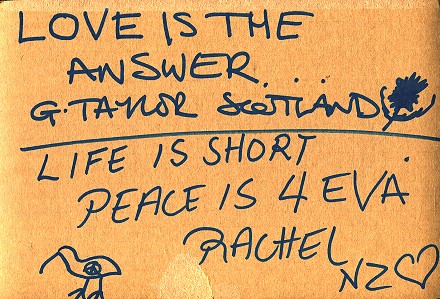 LOVE IS THE
ANSWER....
G. TAYLOR SCOTLAND
LIFE IS SHORT
PEACE IS 4 EVA.
RACHEL
NZ